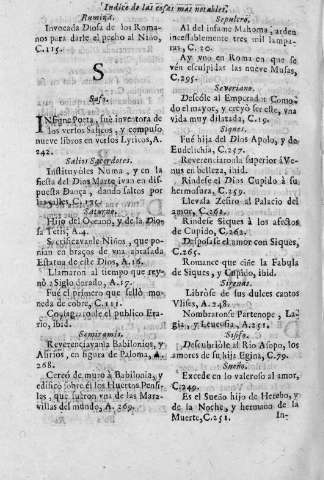 Indice de las cosas mas notables.
Rumina.
Invocada Diosa de los Roma-
nos para darle el pecho al Niño,
C.115.
S
Safo.
INsigne Poeta, fuè inventora de
los versos Saficos, y compuso
nueve libros en versos Lyricos, A.
242.
Salios Sacerdotes.
Instituyòles Numa, y en la
fiesta del Dios Marte ivan en dis-
puesta Dança, dando saltos por
las calles, C.
Saturno.
Hijo del Oceano, y de la Dio-
sa Tetis, A.4.
Sacrificavanle Niños, que po-
nian en braços de una abrasada
Estatua de este Dios, A.16.
Llamaron al tiempo que rey-
nò Siglo dorado, A.17.
Fuè el primero que sellò mo-
neda de cobre, C.111.
el publico Era-
rio, ibid.
Semiramis.
Reverenciavanla Babilonios, y
Asirios, en figura de Paloma, A.
268.
Cercò de muro à Babilonia, y
edificò sobre èl los Huertos Pensi-
les, que fueron una de las Mara-
villas del mundo, A. 269.
Sepulcro.
Al del infame Mahoma, arden
incessablemente tres mil lampa-
ras, C. 20.
Ay uno en Roma en que se
vèn esculpidas las nueve Musas,
C.295.
Severiano.
Deseòle al Emperador Como-
do el mayor, y creyò ser este, vna
vida muy dilatada, C.19.
Siques.
Fuè hija del Dios Apolo, y de
Eudelichia, C.257.
Reverenciaronla superior à Ve-
nus en belleza, ibid.
Rindese el Dios Cupido à su
hermosura, C.259.
Llevala Zefiro al Palacio del
amor, C.262.
Rindese Siques à los afectos
de Cupido, C.262.
Desposase el amor con Siques,
C.265.
Romance que ciñe la Fabula
de Siques, y Cupido, ibid.
Sirenas.
Libròse de sus dulces cantos
Vlises, A.248.
Nombraronse Partenope, Li-
gia, y Leucosia, A.251.
Sisifo.
Descubriòle al Rio Asopo, los
amores de su hija Egina, C.79.
Sueño.
Excede en lo valeroso al amor,
C.249.
Es el Sueño hijo de Herebo, y
de la Noche, y hermano de la
Muerte, C.251.
In-